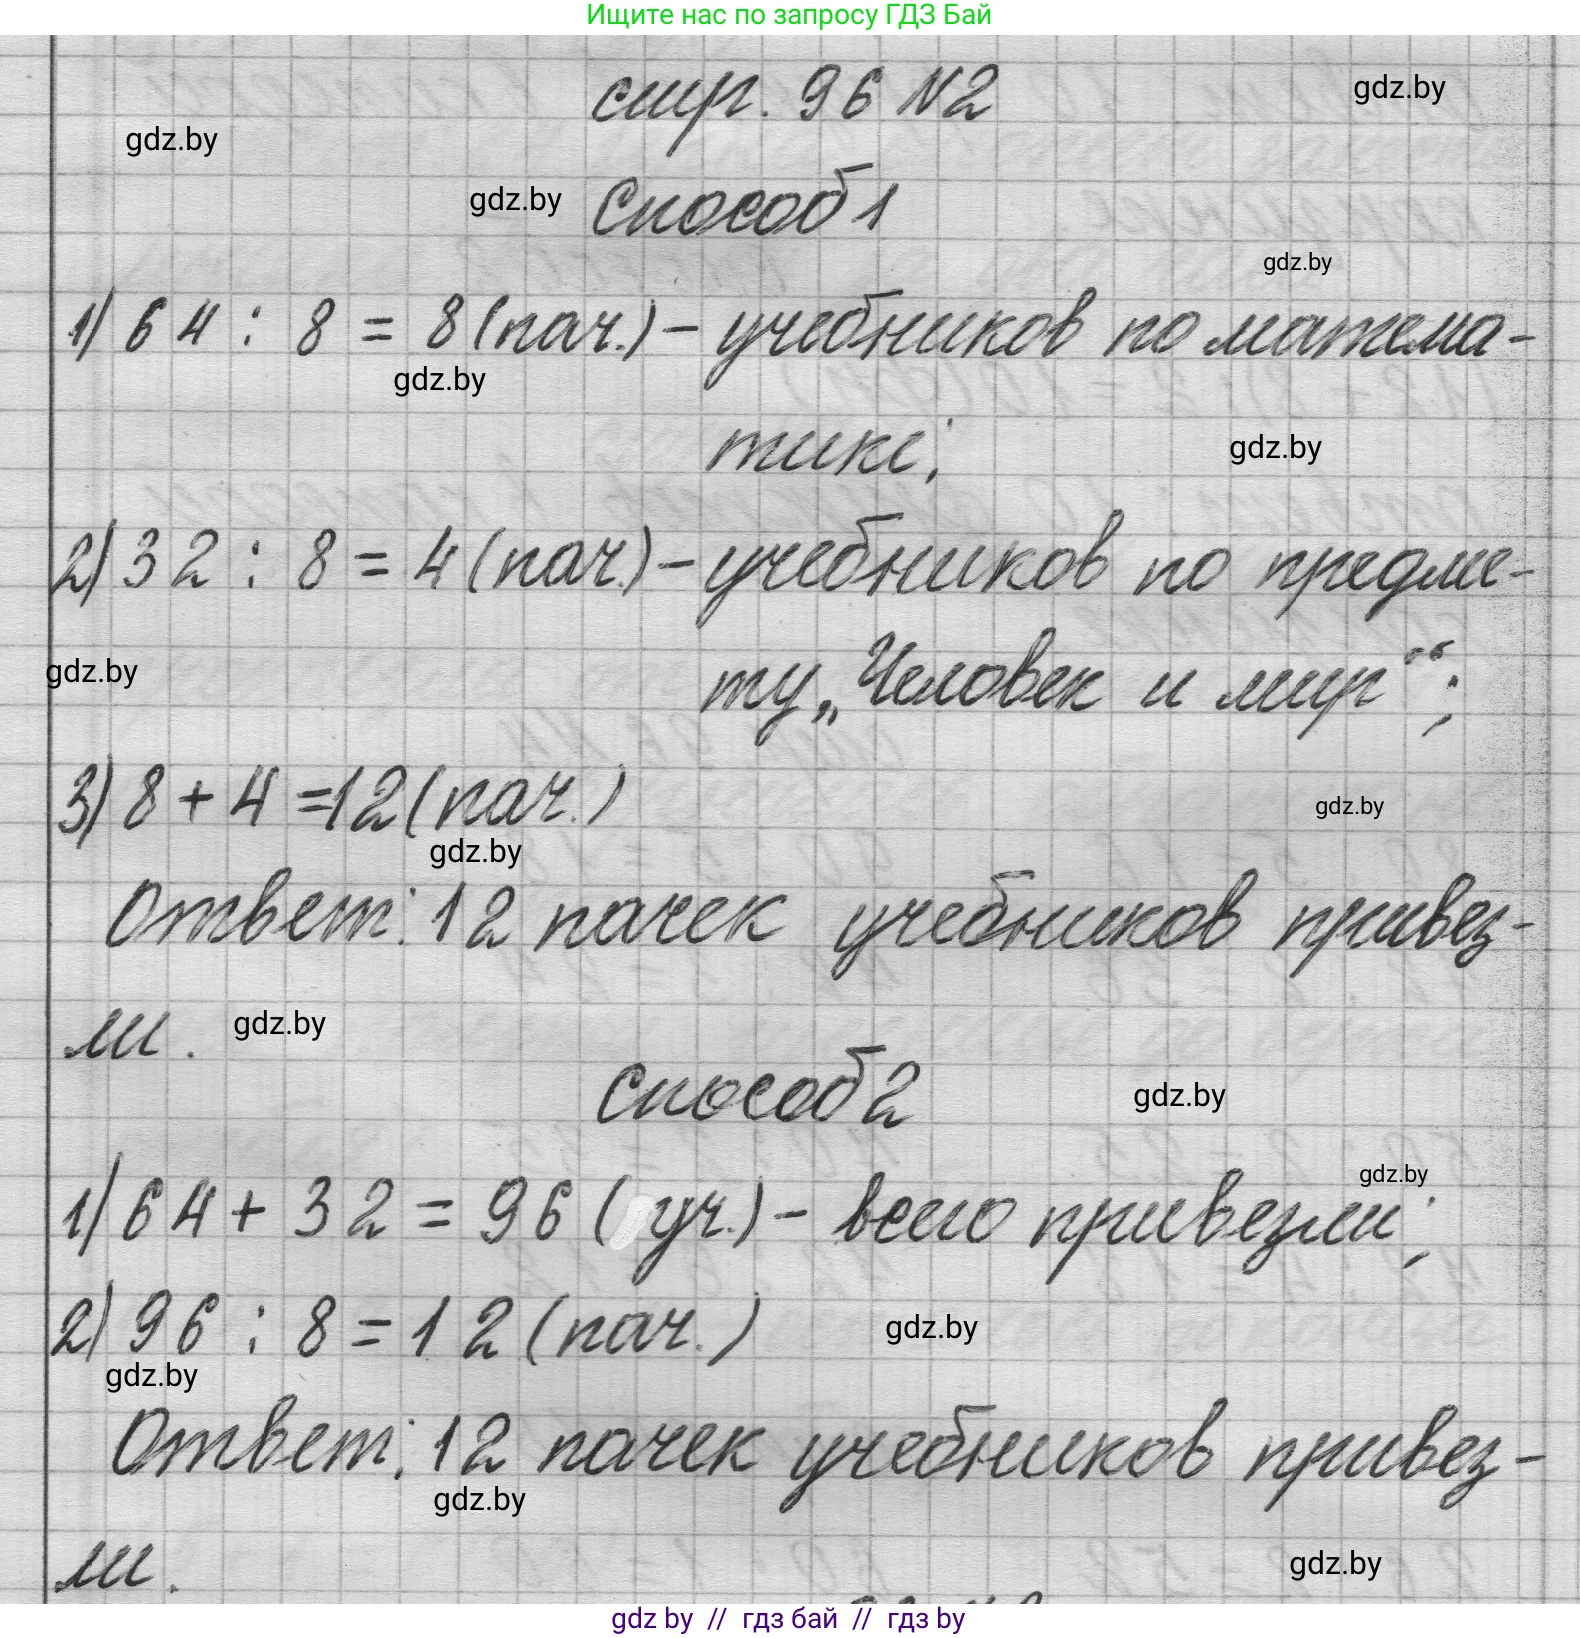 Ищите нас по запросу ГДЗ Бай
стр. 96 №2
gdz.by
gdz.by
gdz.by
Способ 1
gdz.by
1) 64 : 8 = 8 (пач.) – учебников по матема-
gdz.by
тике;
gdz.by
2) 32 : 8 = 4 (пач.) – учебников по предме-
gdz.by
ту „Человек и мир“;
3) 8 + 4 = 12 (пач.)
gdz.by
gdz.by
Ответ: 12 пачек учебников привез-
ли.
gdz.by
способ 2
gdz.by
gdz.by
1) 64 + 32 = 96 (уч.) – всего привезли;
2) 96 : 8 = 12 (пач.)
gdz.by
gdz.by
Ответ: 12 пачек учебников привез-
gdz.by
ли.
gdz.by
gdz by // гдз бай // гдз by